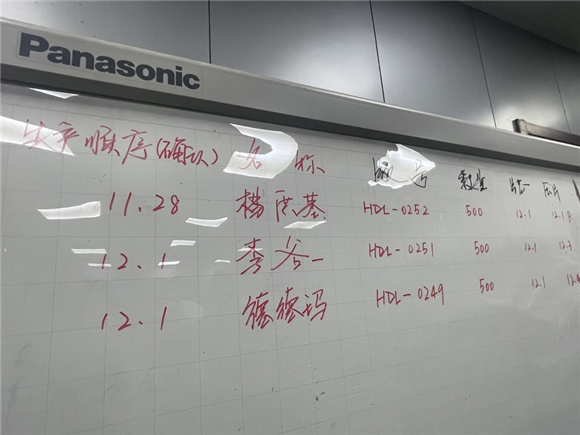 Panasonic
生产顺序(确认) 名称 编号 数量
11.28 杨洪基 HDL-0252 500 12.1
12.1 李谷一 HDL-0251 500 12.1 12.3
12.1 德德玛 HDL-0249 500 12.1